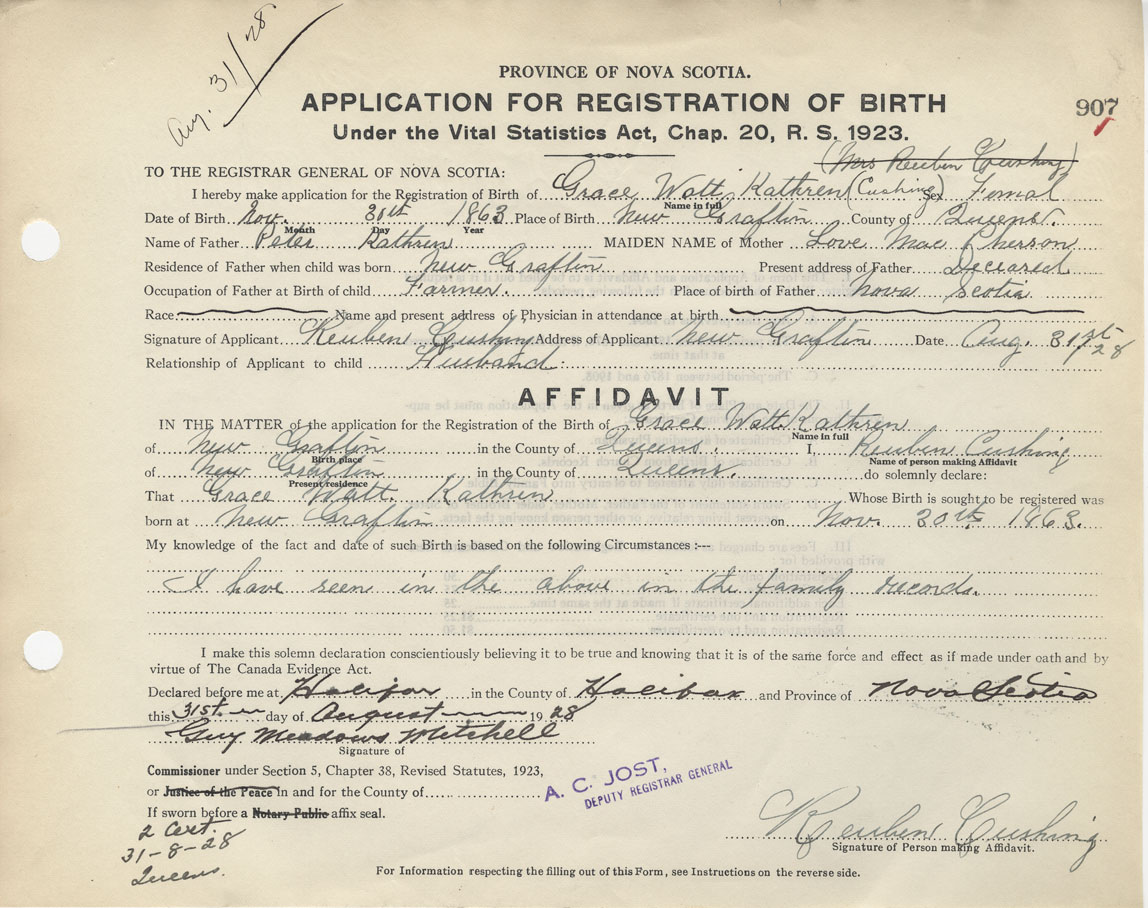 Aug. 31/28
PROVINCE OF NOVA SCOTIA.
APPLICATION FOR REGISTRATION OF BIRTH
907
Under the Vital Statistics Act, Chap. 20, R. S. 1923.
(Mrs Reuben Cushing)
TO THE REGISTRAR GENERAL OF NOVA SCOTIA:
I hereby make application for the Registration of Birth of Grace Watt Kathren (Cushing) Sex Femal
Name in full
Date of Birth Nov. 30th 1863 Place of Birth New Grafton County of Queens.
Month Day Year
Name of Father Peter Kathren MAIDEN NAME of Mother Love MacPherson
Residence of Father when child was born New Grafton Present address of Father Deceased
Occupation of Father at Birth of child Farmer. Place of birth of Father Nova Scotia
Race Name and present address of Physician in attendance at birth
Signature of Applicant Reuben Cushing Address of Applicant New Grafton Date Aug. 31st 28
Relationship of Applicant to child Husband.
AFFIDAVIT
IN THE MATTER of the application for the Registration of the Birth of Grace Watt Kathren
Name in full
of New Grafton in the County of Queens. I, Reuben Cushing
Birth place Name of person making Affidavit
of New Grafton in the County of Queens do solemnly declare:
Present residence
That Grace Watt. Kathren Whose Birth is sought to be registered was
born at New Grafton on Nov. 30th 1863.
My knowledge of the fact and date of such Birth is based on the following Circumstances :---
I have seen in the above in the family records.
I make this solemn declaration conscientiously believing it to be true and knowing that it is of the same force and effect as if made under oath and by
virtue of The Canada Evidence Act.
Declared before me at Halifax in the County of Halifax and Province of Nova Scotia
this 31st day of August 1928
Guy Meadows Mitchell
Signature of
Commissioner under Section 5, Chapter 38, Revised Statutes, 1923,
or Justice of the Peace in and for the County of
If sworn before a Notary Public affix seal.
A. C. JOST,
DEPUTY REGISTRAR GENERAL
2 Cert.
31-8-28
Queens.
Reuben Cushing
Signature of Person making Affidavit.
For Information respecting the filling out of this Form, see Instructions on the reverse side.